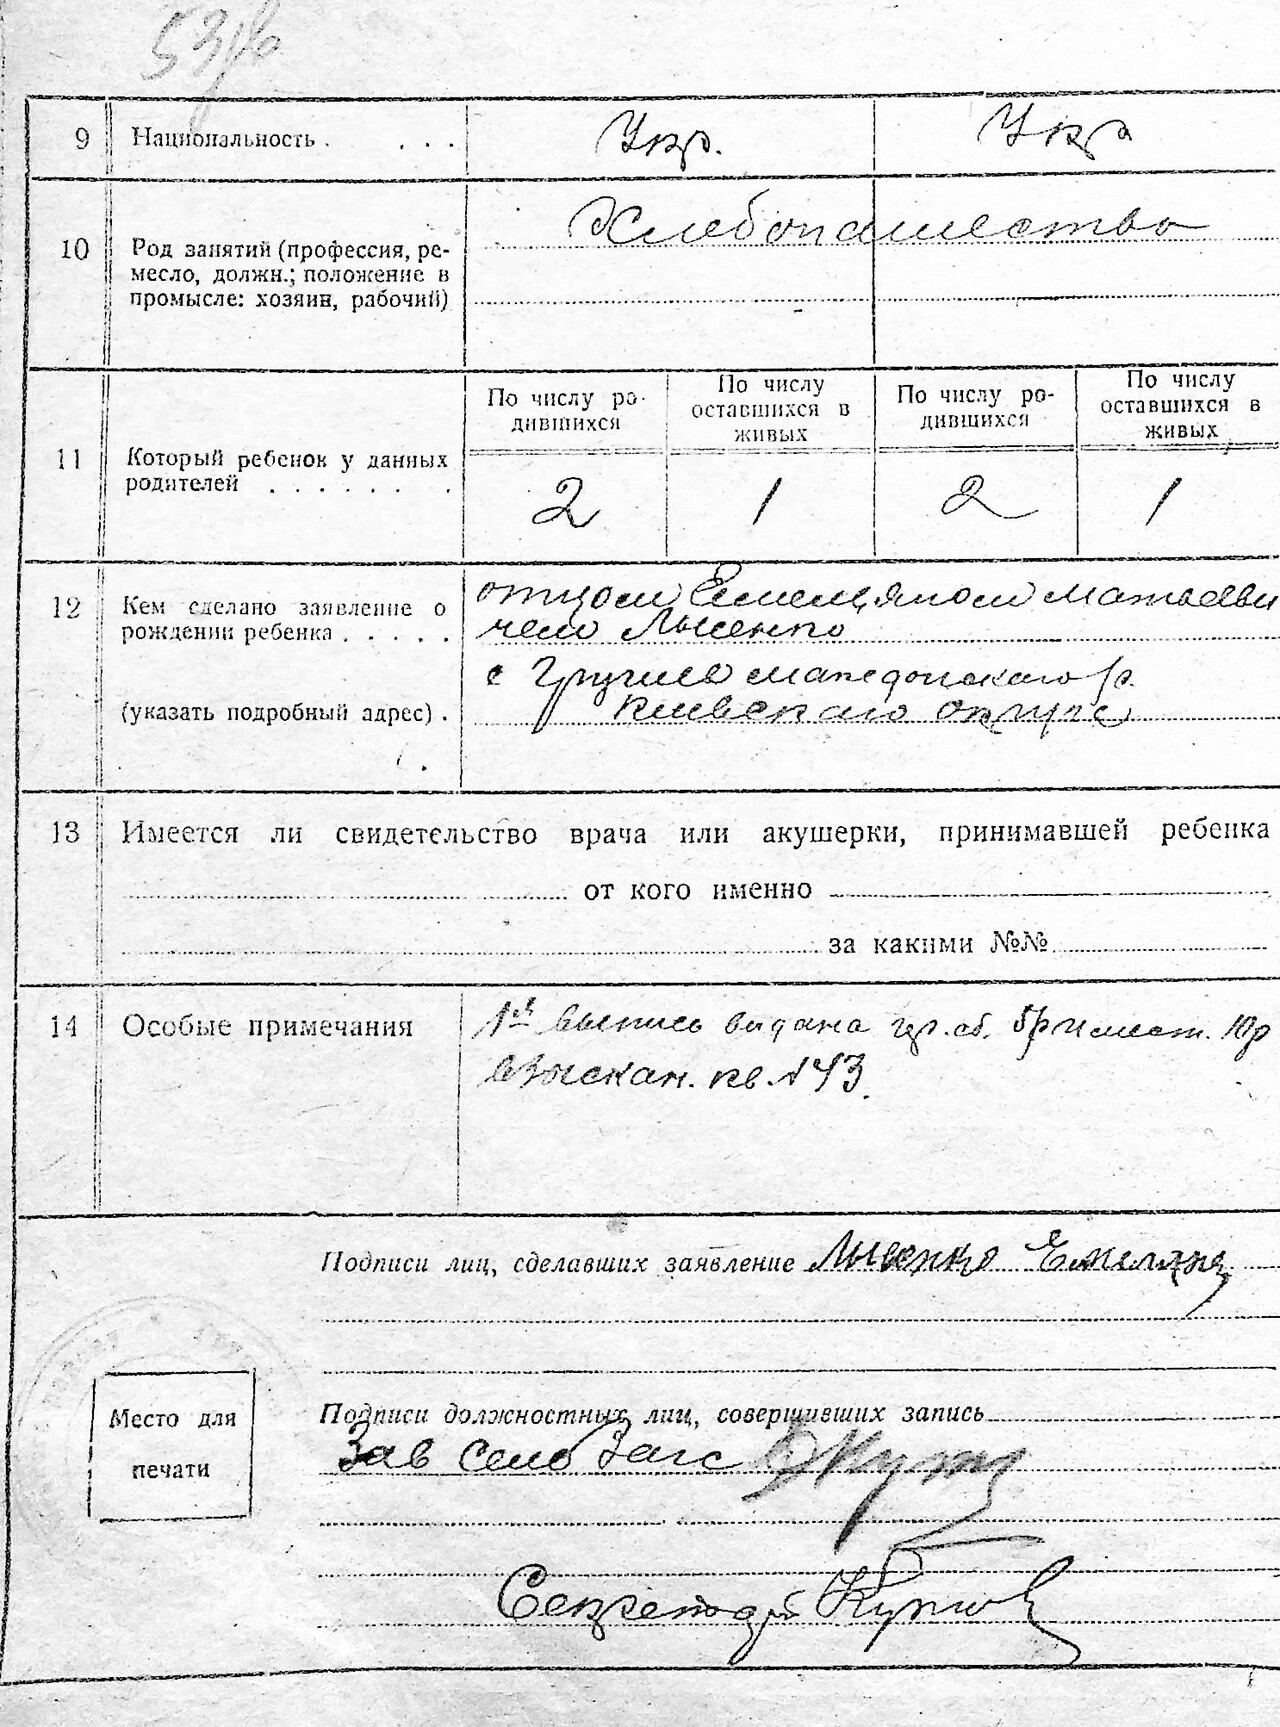 53
9 Национальность . . . . Укр. Укр
10 Род занятий (профессия, ре-
месло, должн.; положение в
промысле: хозяин, рабочий)
Хлебопашество
11 Который ребенок у данных
родителей . . . . . . .
По числу ро-
дившихся
По числу
оставшихся в
живых
По числу ро-
дившихся
По числу
оставшихся в
живых
2 1 2 1
12 Кем сделано заявление о
рождении ребенка . . . . .
(указать подробный адрес) .
отцом Емельяном Матвееви
чем Лысенко
с
Киевского округа
13 Имеется ли свидетельство врача или акушерки, принимавшей ребенка
от кого именно
за какими №№
14 Особые примечания
1й выпись видана
взыскан. кв. № 43.
Подписи лиц, сделавших заявление Лысенко Емельян
Место для
печати
Подписи должностных лиц, совершивших запись
Зав Село Загс
Секретарь